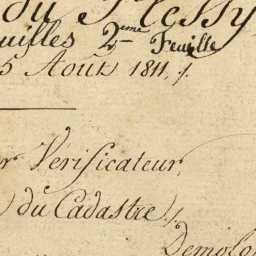 du Plessy
uilles 2ème Feuille
5 Août 1811,/.
r Verificateur,
du Cadastre,/.
Demolo